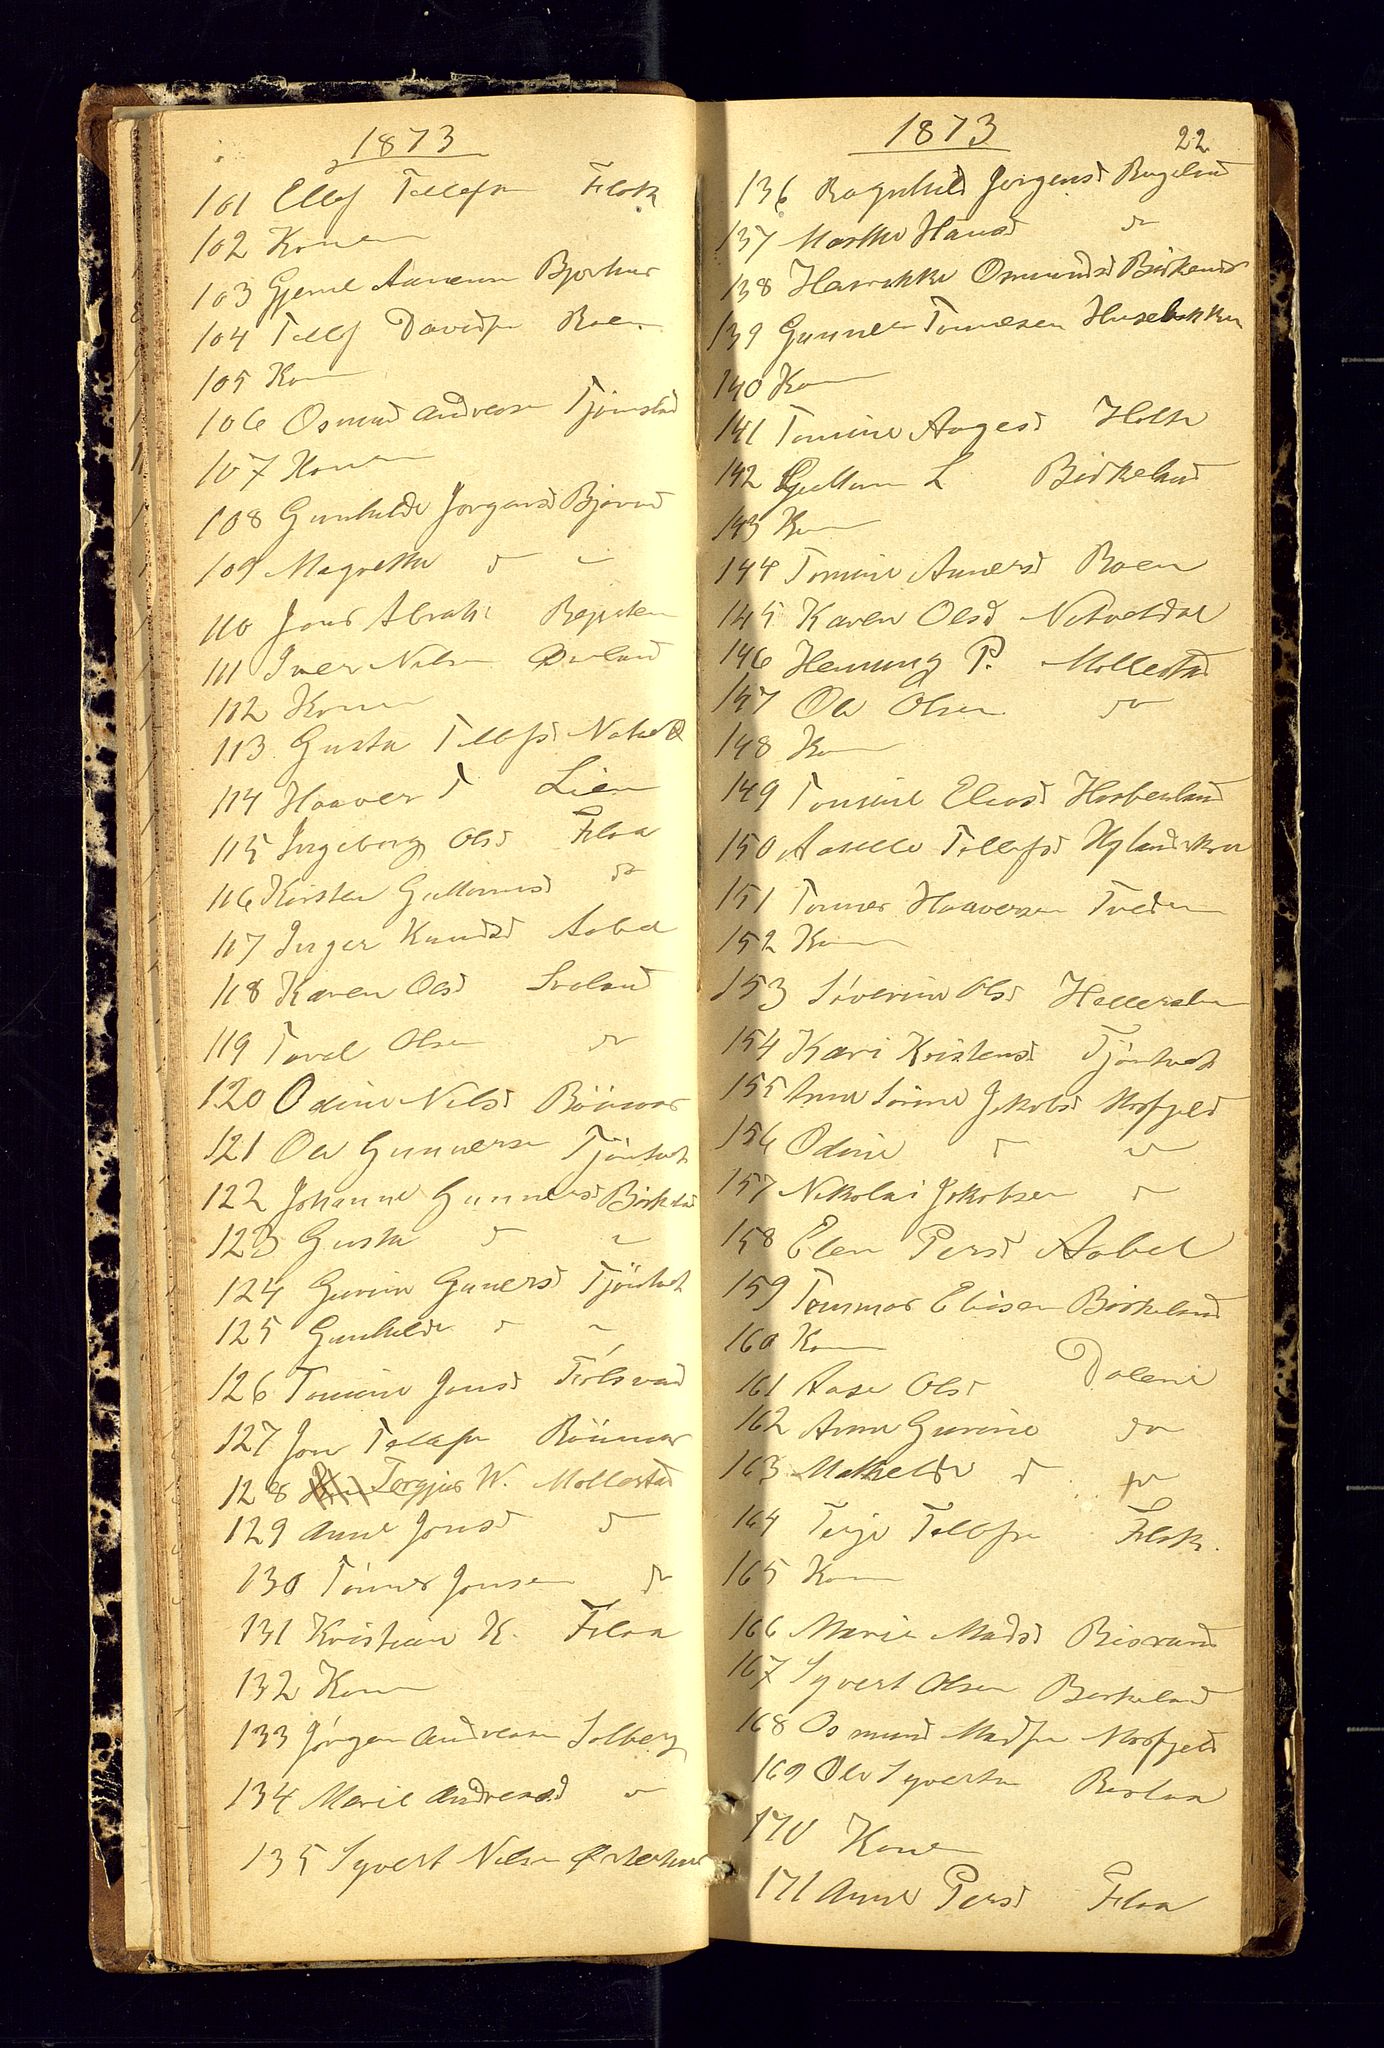 1873
101 Ellef Tellefsn Flak
102 Konen
103 Gjerul Aanensn Bjorhus
104 Tellf Davidsn Boen
105 Kon
106 Osmund Andreasn Tjømstad
107 Konen
108 Gunhilde Jørgensd Bjørvad
109 Magrethe d "
110 Jens Abrah
111 Iver Nilsn Øvland
112 Konen
113 Gusta Tellefsd
114 Haaver T Lien
115 Ingeborg Olsd Flaa
116 Kirsten Guttormsd do
117 Inger Knudsd Aabel
118 Karen Olsd Svaland
119 Tarel Olsen do
120 Odine Nilsd Rønevar
121 Ole Gunnersn Tjøntvet
122 Johanne Gunnersd Birkelad
123 Gusta d "
124 Gurine Gunersd Tjøntvet
125 Gunhilde d "
126 Tomine Jensd Fidsvad
127 Jon Tellefsn Rønevar
128 Tergjus W. Mollestad
129 Anne Jonsd d
130 Tønnes Jonsen do
131 Kristian K. Flaa
132 Kone
133 Jørgen Andreasn Solberg
134 Marie Andreasd "
135 Syvert Nilsn Østerhus
1873 22
136 Ragnhild Jørgensd Bugelad
137 Marthe Hansd do
138 Henrikke Osmundsd Birkenes
139 Gunner Tomesen Husebakken
140 Kon
141 Tomine Aagesd Holte
142 Guttorm L Birkeland
143 Kon
144 Tomine Annersd Boen
145 Karen Olsd Notvetdal
146 Henning P. Mollestad
147 Ole Olsen do
148 Kon
149 Tomine Eliasd Haabesland
150 Aaselle Tellefsd Hylandskar
151 Tønnes Haaversen Tveden
152 Kon
153 Siverine Olsd Helleren
154 Kari Kristensd Tjøntvet
155 Anne Sørine Jakobsd Norfjeld
156 Odine d "
157 Nikolai Jakobsen d
158 Elen Persd Aabel
159 Tommas Eliasen Birkeland
160 Kon
161 Aase Olsd Dalene
162 Anne Gurine do
163 Mathilde d do
164 Terje Tellefsn Flak
165 Kon
166 Marie Madsd Bisvand
167 Syvert Olsen Birkelad
168 Osmund Madsn Norfjeld
169 Ole Syvertsn
170 Kone
171 Anne Persd Flaa